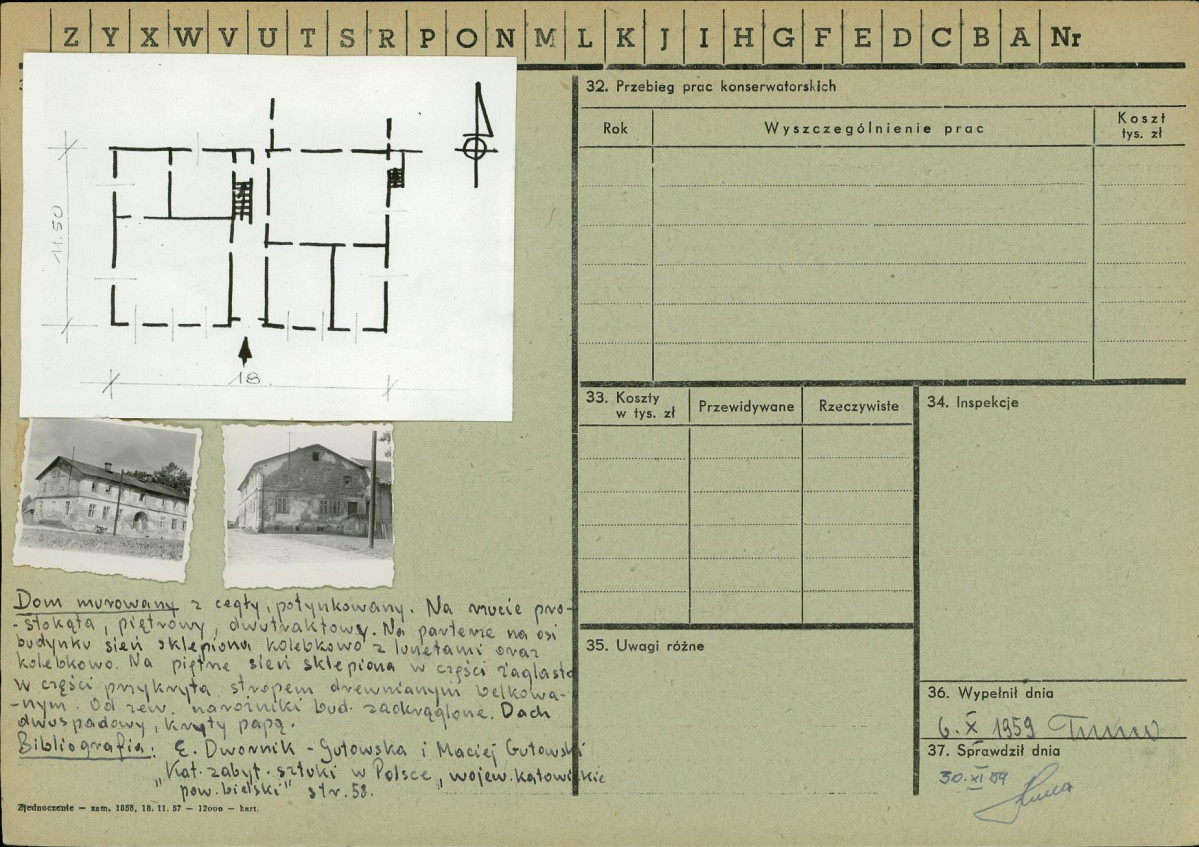 Z Y X W V U T S R P O N M L K J I H G F E D C B A Nr
11.50
18
Dom murowany z cegły, potynkowany. Na rzucie pro-
-stokąta, piętrowy, dwutraktowy. Na parterze na osi
budynku sień sklepiona kolebkowo z lunetami oraz
kolebkowo. Na piętrze sień sklepiona w części żaglasto
w części przykryta stropem drewnianym belkowa-
-nym. Od zew. narożniki bud. zaokrąglone. Dach
dwuspadowy, kryty papą.
Bibliografia: E. Dwornik-Gutowska i Maciej Gutowski
"Kat. zabyt. sztuki w Polsce, wojew. katowickie
pow. bielski" str. 58.
Zjednoczenie — zam. 1858, 18. 11. 57 — 12000 — kart.
32. Przebieg prac konserwatorskich
Rok
Wyszczególnienie prac
Koszt
tys. zł
33. Koszty
w tys. zł
Przewidywane
Rzeczywiste
34. Inspekcje
35. Uwagi różne
36. Wypełnił dnia
6. X 1959
37. Sprawdził dnia
30. XI 59